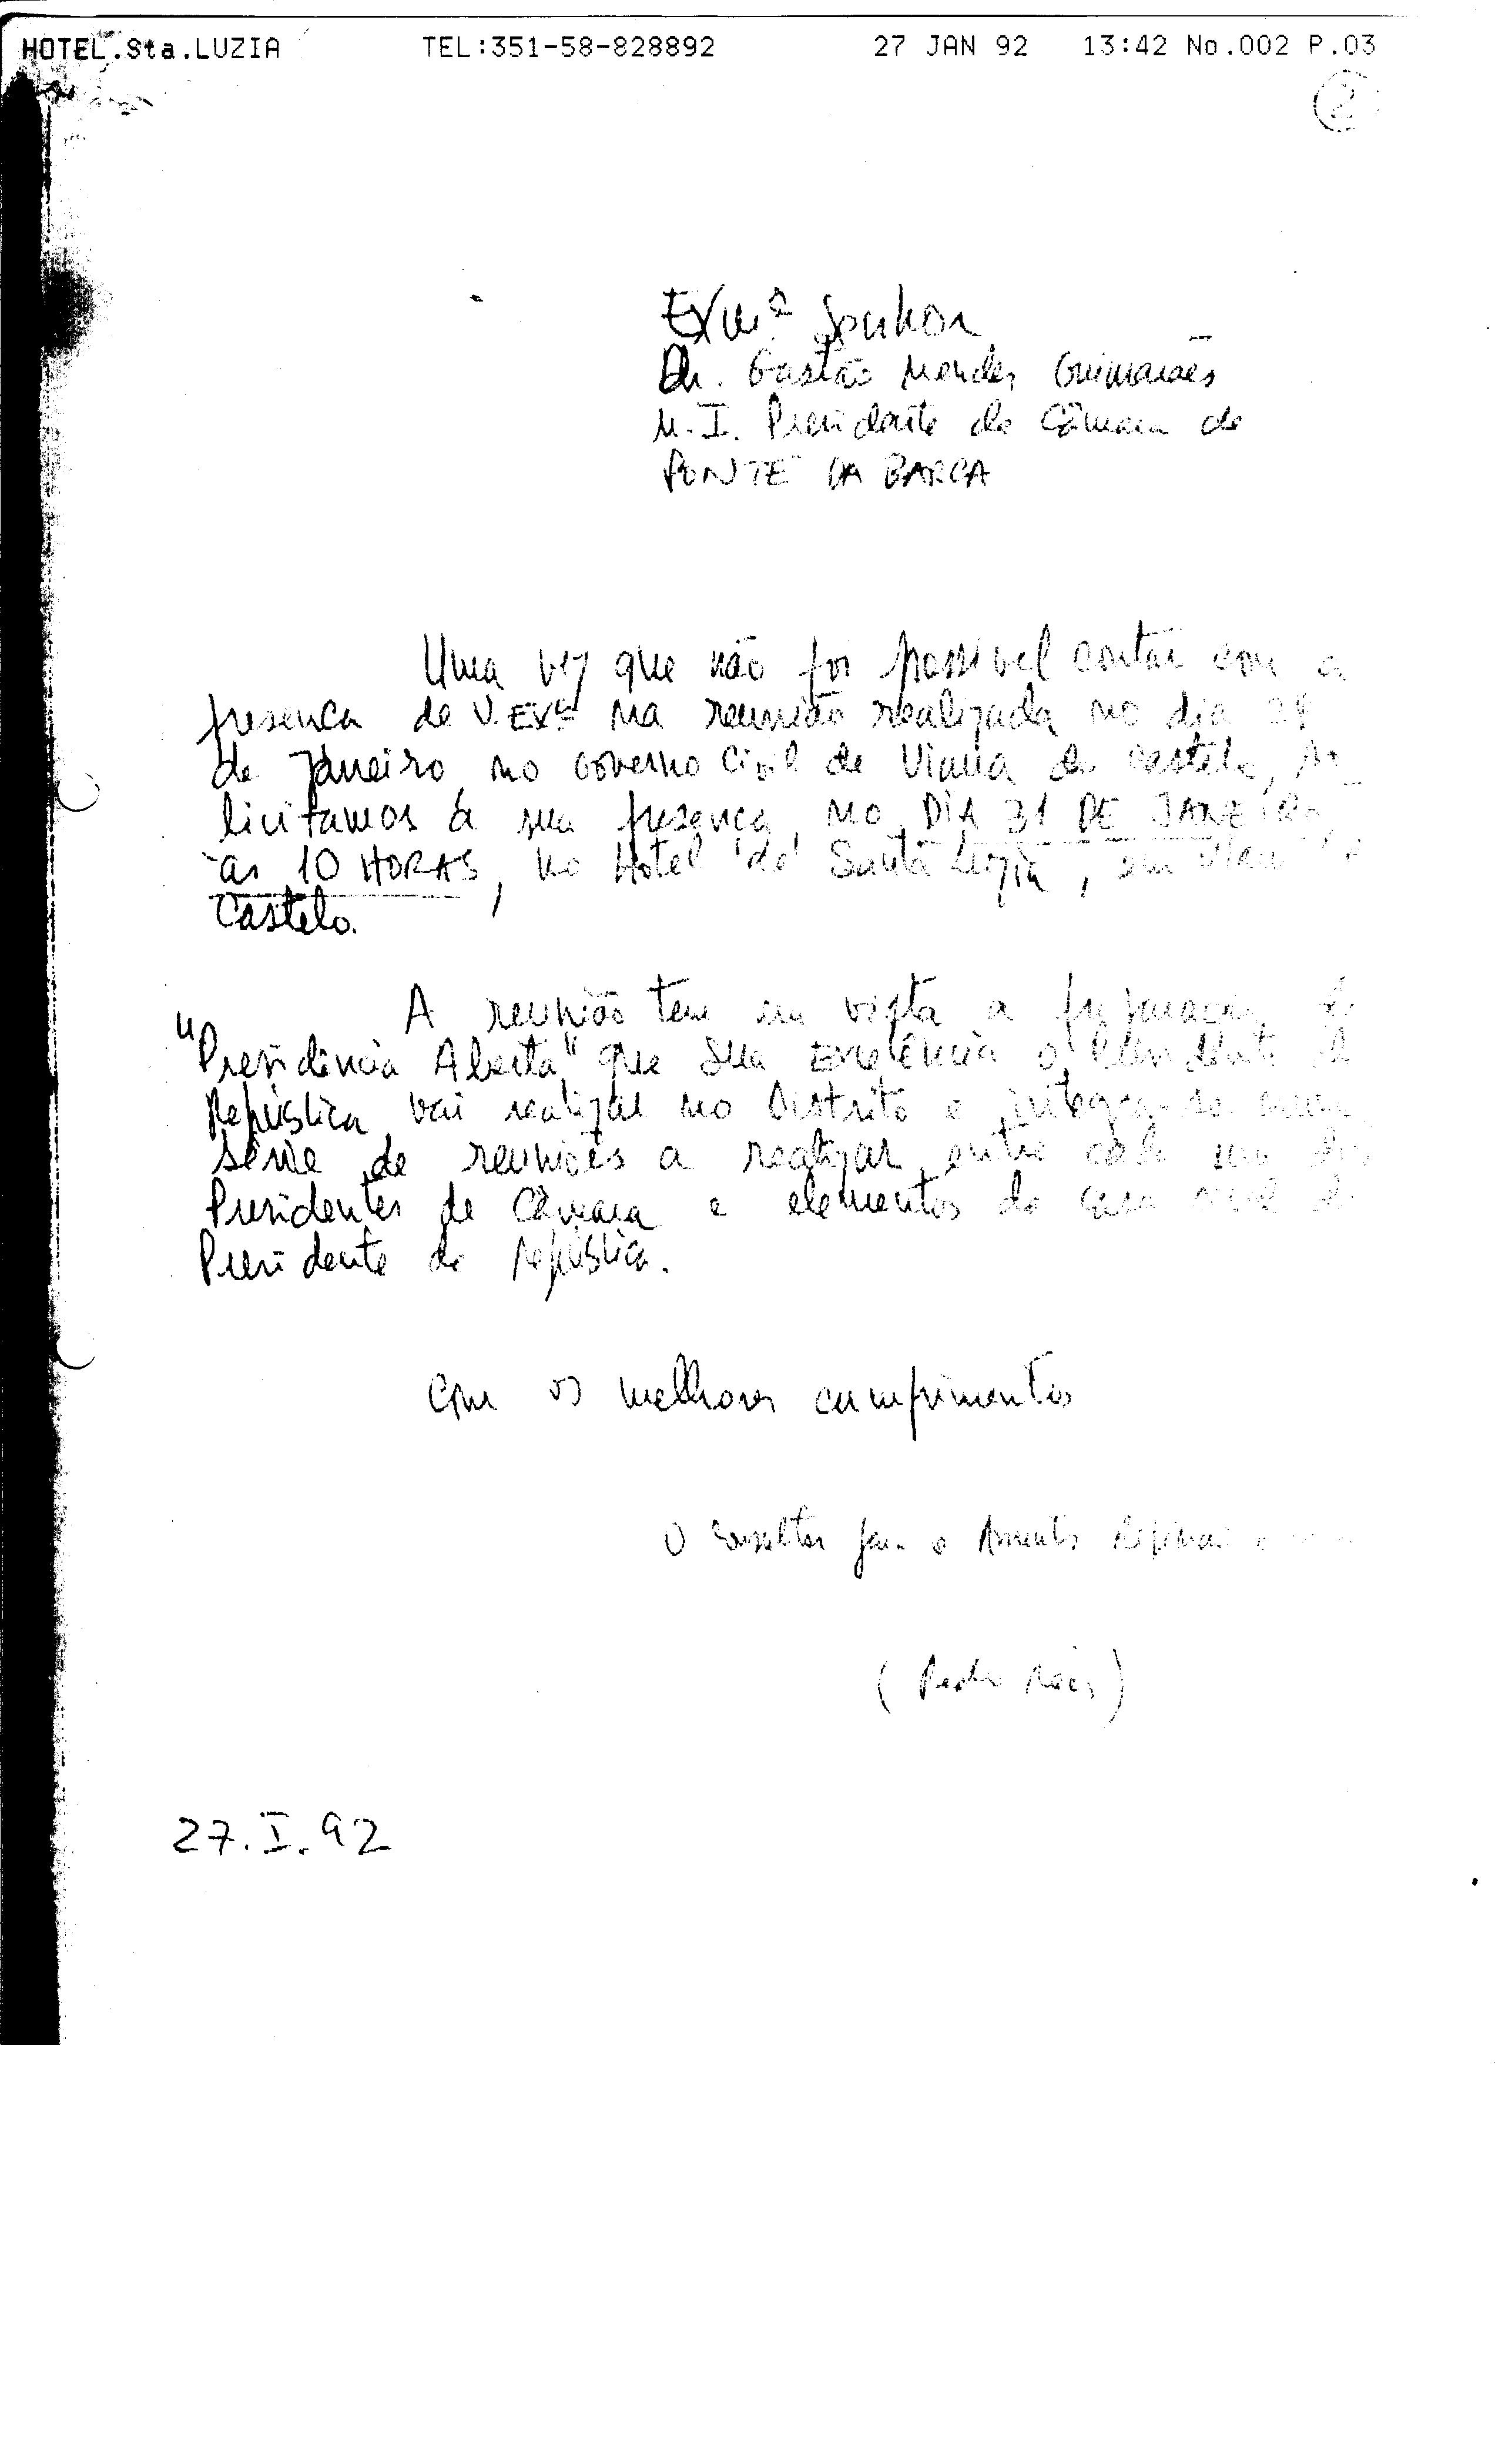 HOTEL.Sta.LUZIA TEL:351-58-828892 27 JAN 92 13:42 No.002 P.03
2
Exmº Senhor
Dr. Gastão Mendes Guimarães
M.I. Presidente da Câmara de
PONTE DA BARCA
Uma vez que não foi possível contar com a
presença de V. EXª na reunião realizada no dia
de Janeiro, no Governo Civil de Viana do Castelo, so
licitamos a sua presença, no DIA 31 DE JANEIRO,
às 10 HORAS, no Hotel de Santa Luzia, em
Castelo.
A reunião tem em vista a preparação da
"Presidência Aberta" que Sua Excelência o Presidente da
República vai realizar no Distrito e integra-se numa
série de reuniões a realizar entre cada um dos
Presidentes de Câmara e elementos da Casa Civil do
Presidente da República.
Com os melhores cumprimentos
O Consultor para os Assuntos
(Pedro
27.I.92